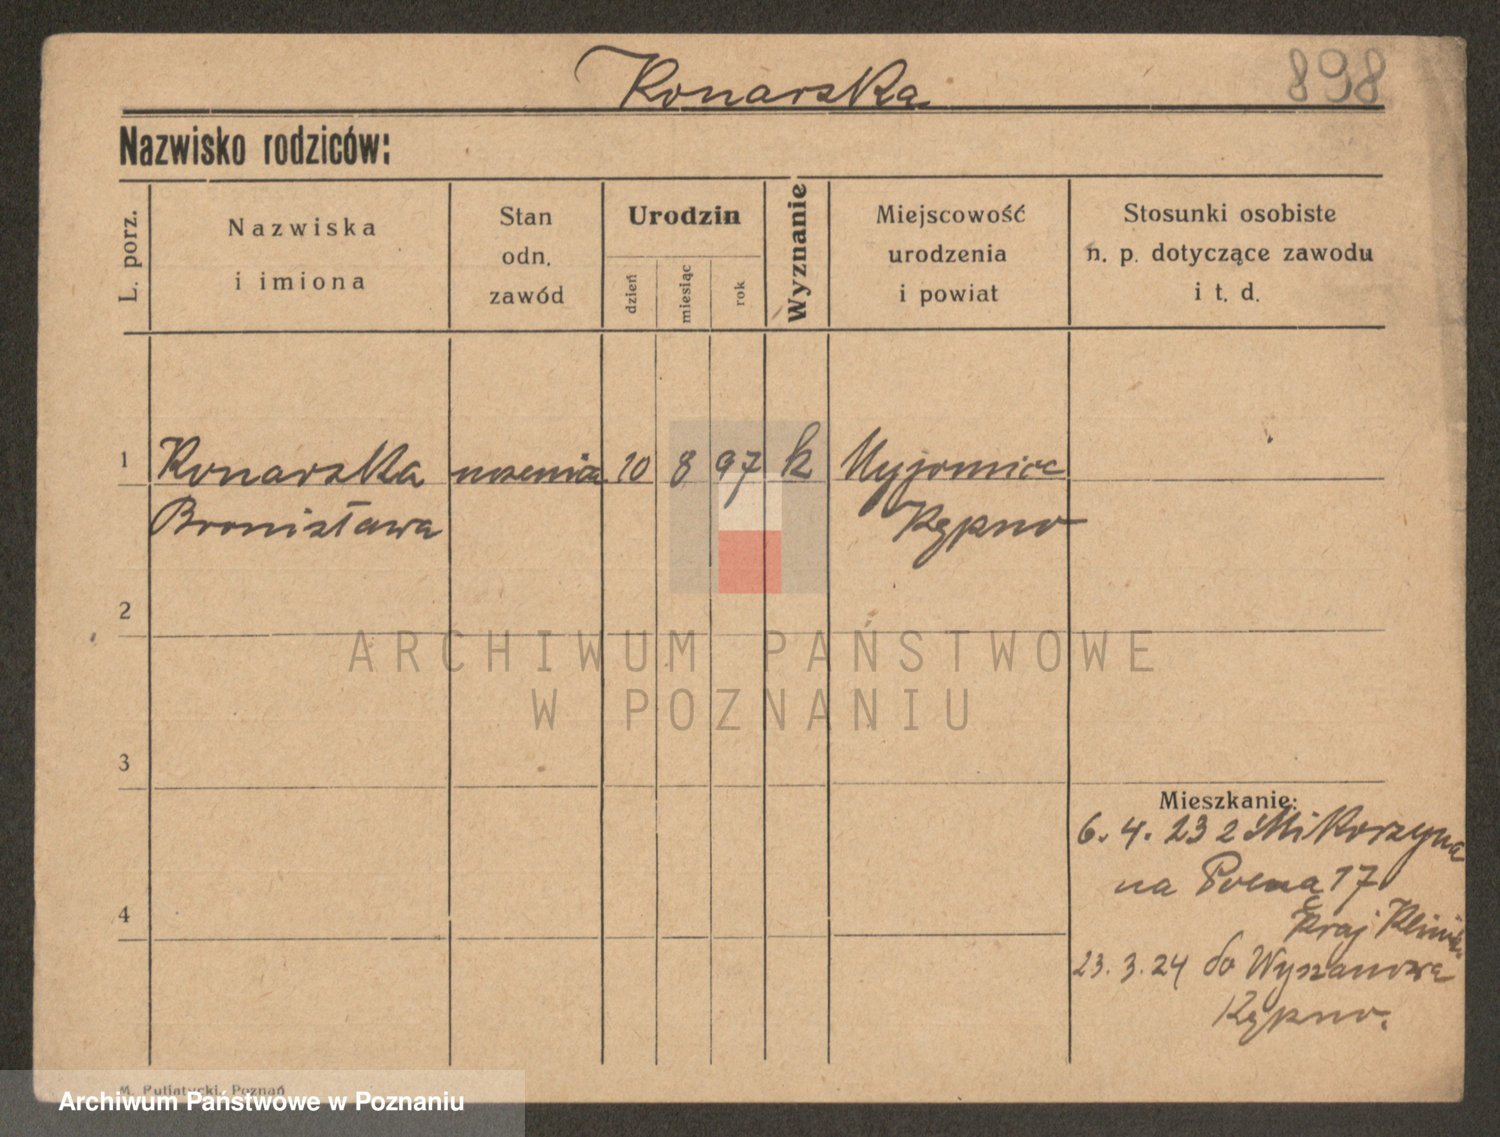 Konarska
898
Nazwisko rodziców:
L. porz.
Nazwiska
i imiona
Stan
odn.
zawód
Urodzin
dzień
miesiąc
rok
Wyznanie
Miejscowość
urodzenia
i powiat
Stosunki osobiste
n. p. dotyczące zawodu
i t. d.
1 Konarska 10 8 97 k Myjomice
Bronisława Kępno
2
ARCHIWUM PAŃSTWOWE
W POZNANIU
3
Mieszkanie:
6. 4. 23 z Mikorzyna
na Polna 17
Kraj Klinik
4
23. 3. 24 do Wyszanowa
Kępno.
M. Putiatycki, Poznań
Archiwum Państwowe w Poznaniu